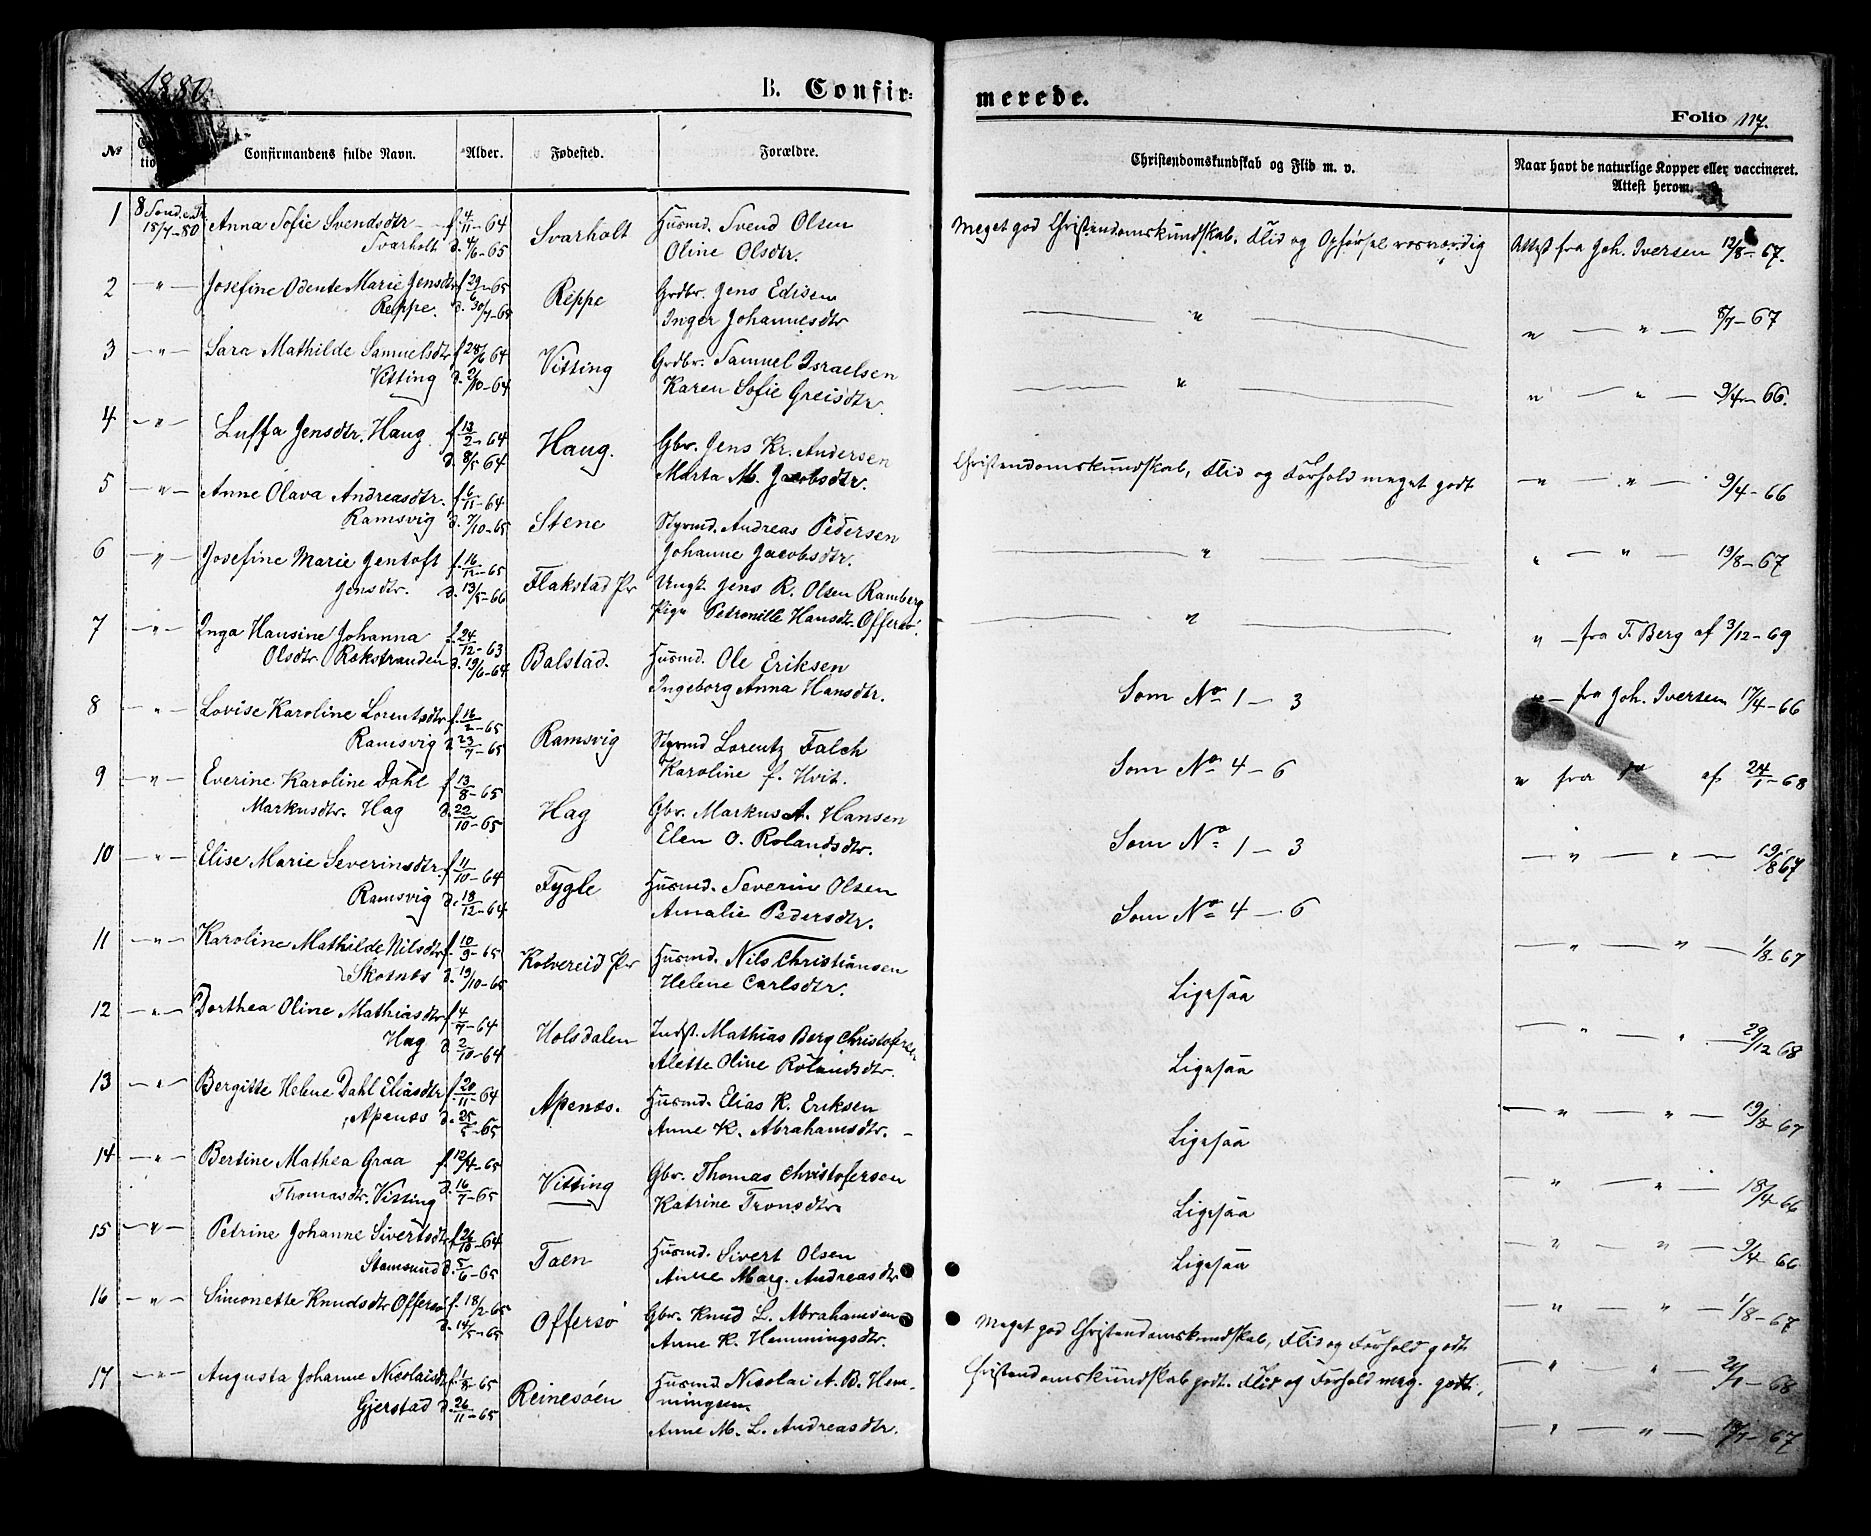 1880
B. Confir=
merede.
Folio 117.
No
Confirmandens fulde Navn.
Alder.
Fødested.
Forældre.
Christendomskundskab og Flid m. v.
Naar havt de naturlige Kopper eller vaccineret.
Attest herom.
1 8 Sond. e. Tr. Anna Sofie Svendsdtr f. 4/11-64 Svarholt Husmd. Svend Olsen Meget god Christendomskundskab. Flid og Opførsel rosværdig Attest fra Joh. Iversen 12/8-67.
15/7-80 Svarholt d. 4/6-65 Oline Olsdtr.
2 -"- Josefine Odente Marie Jensdtr f. 29/6-65 Reppe Grdbr. Jens Edisen " " " 8/7-67
Reppe. d. 30/7-65 Inger Johannesdtr
3 -"- Sara Mathilde Samuelsdtr f. 28/6 64 Vitting Grdbr. Samuel Israelsen " " " 9/4-66.
Vitting d. 2/10-64 Karen Sofie Greisdtr.
4 -"- Luffa Jensdtr. Haug f. 13/2-64 Haug. Gbr. Jens Kr. Andersen Christendomskundskab, Flid og Forhold meget godt " " 9/4-66
d. 8/5 64 Marta M. Jacobsdtr.
5 -"- Anne Olava Andreasdtr. f. 6/11-64 Stene Styrmd. Andreas Pedersen " " " 19/8-67
Ramsvig d. 7/10-65 Johanne Jacobsdtr.
6 -"- Josefine Marie Jentoft f. 16/12-65 Flakstad Pr Ungk. Jens R. Olsen Ramberg " " fra T. Berg af 3/12-69
Jensdtr. d. 13/5-66 Pige Petronille Hansdtr. Offersø.
7 -"- Inga Hansine Johanna f. 24/12-63 Balstad. Husmd. Ole Eriksen Som No 1-3 " fra Joh. Iversen 17/4-66
Olsdtr. Rækstranden d. 19/6-64 Ingeborg Anna Hansdtr.
8 -"- Lovise Karoline Lorentsdtr f. 16/2-65 Ramsvig Styrmd Lorentz Falch Som No 4-6 " fra " af 24/1-68
Ramsvig d. 23/7-65 Karoline f. Hvit.
9 -"- Everine Karoline Dahl f. 13/8-65 Hag Gbr. Markus A. Hansen Som No 1-3 " " 19/8 67
Markusdtr. Hag d. 22/10-65 Elen O. Rolandsdtr.
10 -"- Elise Marie Severinsdtr. f. 11/10-64 Fygle Husmd. Severin Olsen Som No 4-6 " " 1/8-67
Ramsvig d. 18/12-64 Amalie Pedersdtr.
11 -"- Karoline Mathilde Nilsdtr f. 10/9-65 Kolvereid Pr Husmd. Nils Christiansen Ligesaa " " 29/12 68
Skotnes d. 19/10-65 Helene Carlsdtr.
12 -"- Dorthea Oline Mathiasdtr f. 4/7-64 Holsdalen Indst. Mathias Berg Christofersen Ligesaa " " 19/8-67
Hag d. 2/10-64 Alette Oline Rolandsdtr.
13 -"- Bergitte Helene Dahl Eliasdtr f. 20/11-64 Apenes. Husmd. Elias K. Eriksen Ligesaa " " 18/4-66
Apenes d. 25/5-65 Anne K. Abrahamsdtr.
14 -"- Bertine Mathea Graa f. 12/4-65 Vitting Gbr. Thomas Christofersen Ligesaa " " 9/4-66
Thomasdtr. Vitting d. 16/7-65 Katrine Tronsdtr
15 -"- Petrine Johanne Sivertsdtr f. 26/10-64 Taen Husmd. Sivert Olsen Ligesaa " " 1/8-67
Stamsund d. 5/6-65 Anne Marg. Andreasdtr
16 -"- Simonette Knudsdtr Offersø f. 18/2-65 Offersø Gbr. Knud L. Abrahamsen Meget god Christendomskundskab, Flid og Forhold godt " "
d. 14/5-65 Anne K. Hemmingsdtr.
17 -"- Augusta Johanne Nicolaisdtr Reinesøen Husmd. Nicolai A. B. Hem- Christendomskundskab godt. Flid og Forhold meg. godt, " "
Gjerstad d. 26/11-65 mingsen
Anne M. L. Andreasdtr.